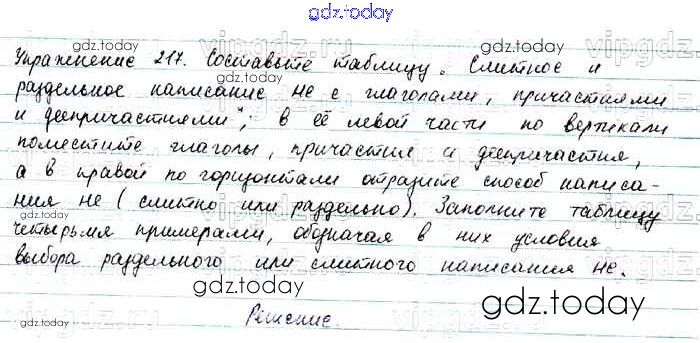 gdz.today
Упражнение 217. Составьте таблицу „Слитное и
раздельное написание не с глаголами, причастиями
и деепричастиями“; в её левой части по вертикали
поместите глаголы, причастия и деепричастия,
а в правой по горизонтали отразите способ написа-
ния не (слитно или раздельно). Заполните таблицу
четырьмя примерами, обозначая в них условия
выбора раздельного или слитного написания не.
Решение.
gdz.today
gdz.today
gdz.today
gdz.today
gdz.today
gdz.today
gdz.today
gdz.today